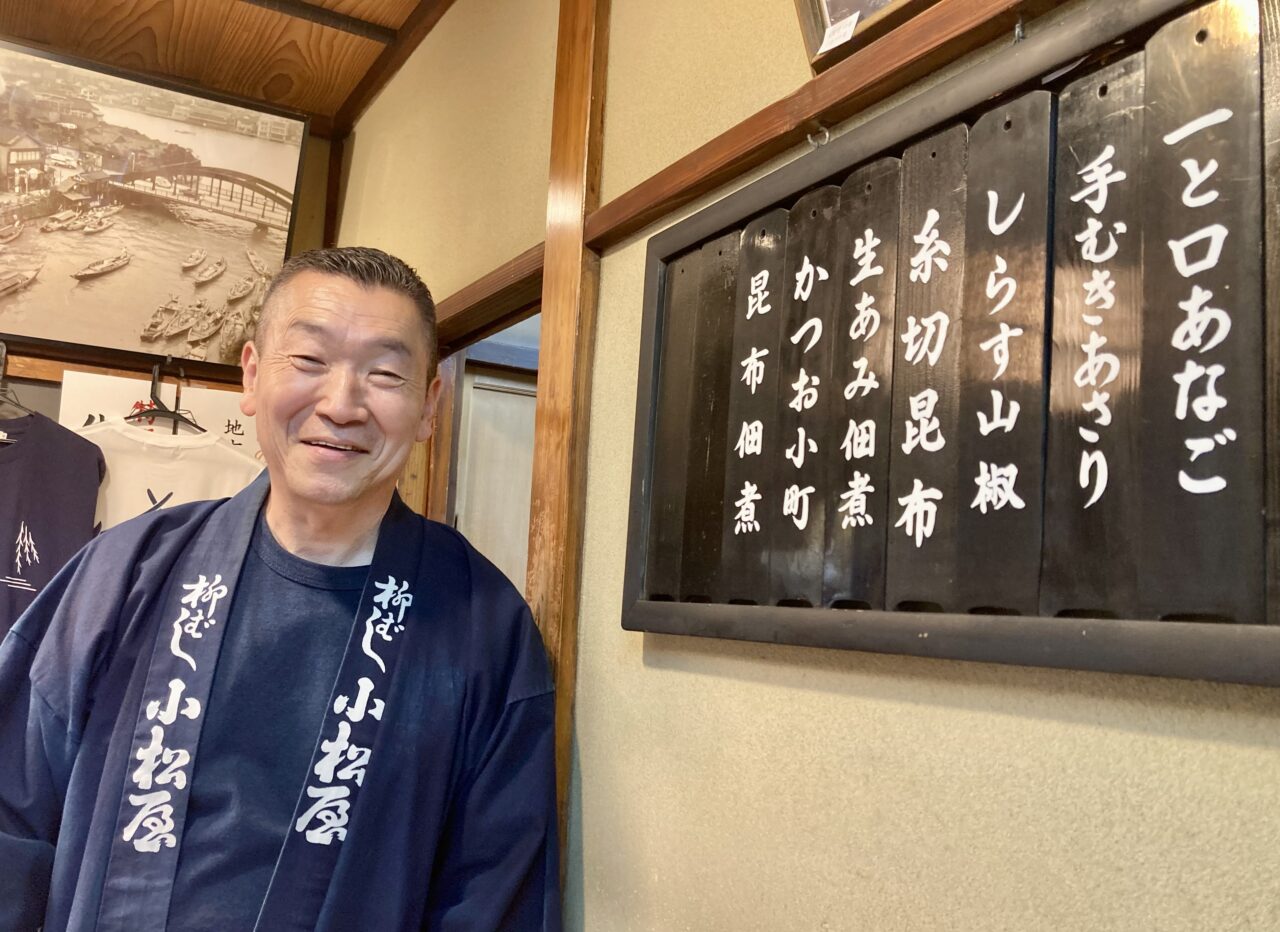 一と口あなご
手むきあさり
しらす山椒
糸切昆布
生あみ佃煮
かつお小町
昆布佃煮
柳ばし小松屋
柳ばし小松屋
特
地